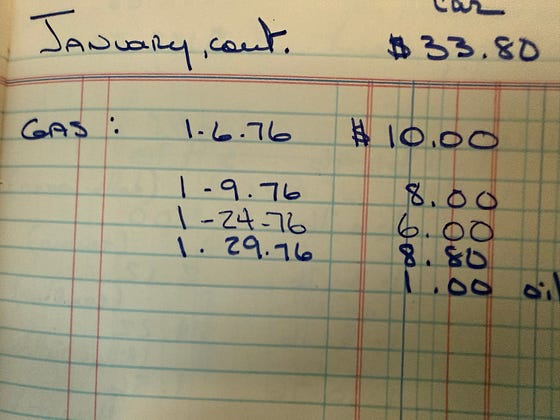 car
January, cont. $33.80
GAS: 1.6.76 $10.00
1-9.76 8.00
1-24-76 6.00
1.29.76 8.80
1.00 oil